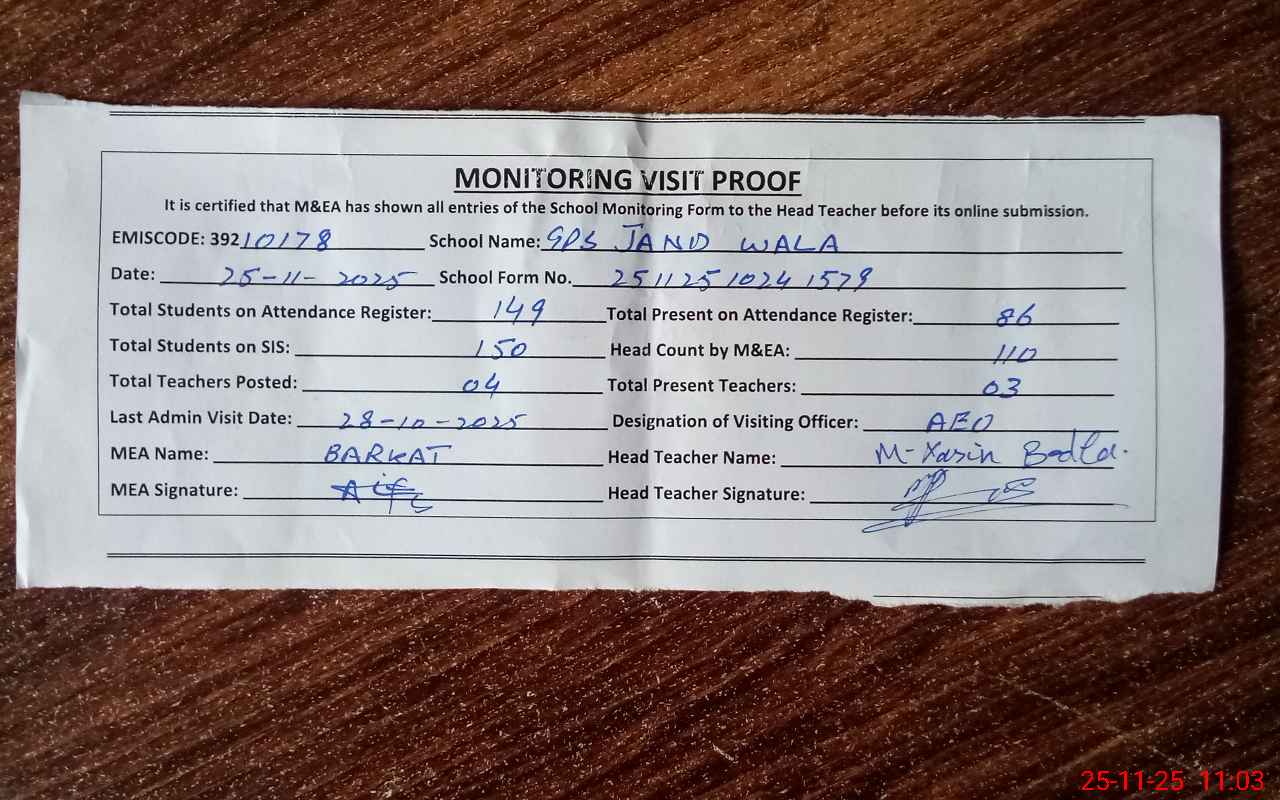 MONITORING VISIT PROOF
It is certified that M&EA has shown all entries of the School Monitoring Form to the Head Teacher before its online submission.
EMISCODE: 39210178 School Name: GPS JAND WALA
Date: 25-11-2025 School Form No. 2511251024 1579
Total Students on Attendance Register: 149 Total Present on Attendance Register: 86
Total Students on SIS: 150 Head Count by M&EA: 110
Total Teachers Posted: 04 Total Present Teachers: 03
Last Admin Visit Date: 28-10-2025 Designation of Visiting Officer: AEO
MEA Name: BARKAT Head Teacher Name: M-Yasin Bodla.
MEA Signature: Head Teacher Signature:
25-11-25 11:03